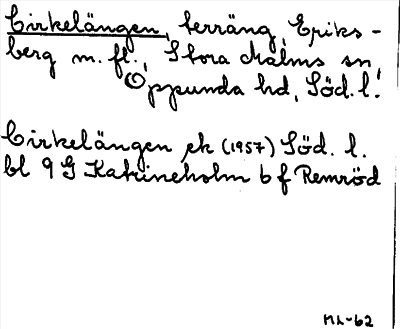 Cirkelängen, terräng, Eriks-
berg m. fl., Stora Malms sn,
Oppunda hd, Söd. l.
Cirkelängen ek (1957) Söd. l.
bl 9 G Katrineholm b f Remröd
ML-62